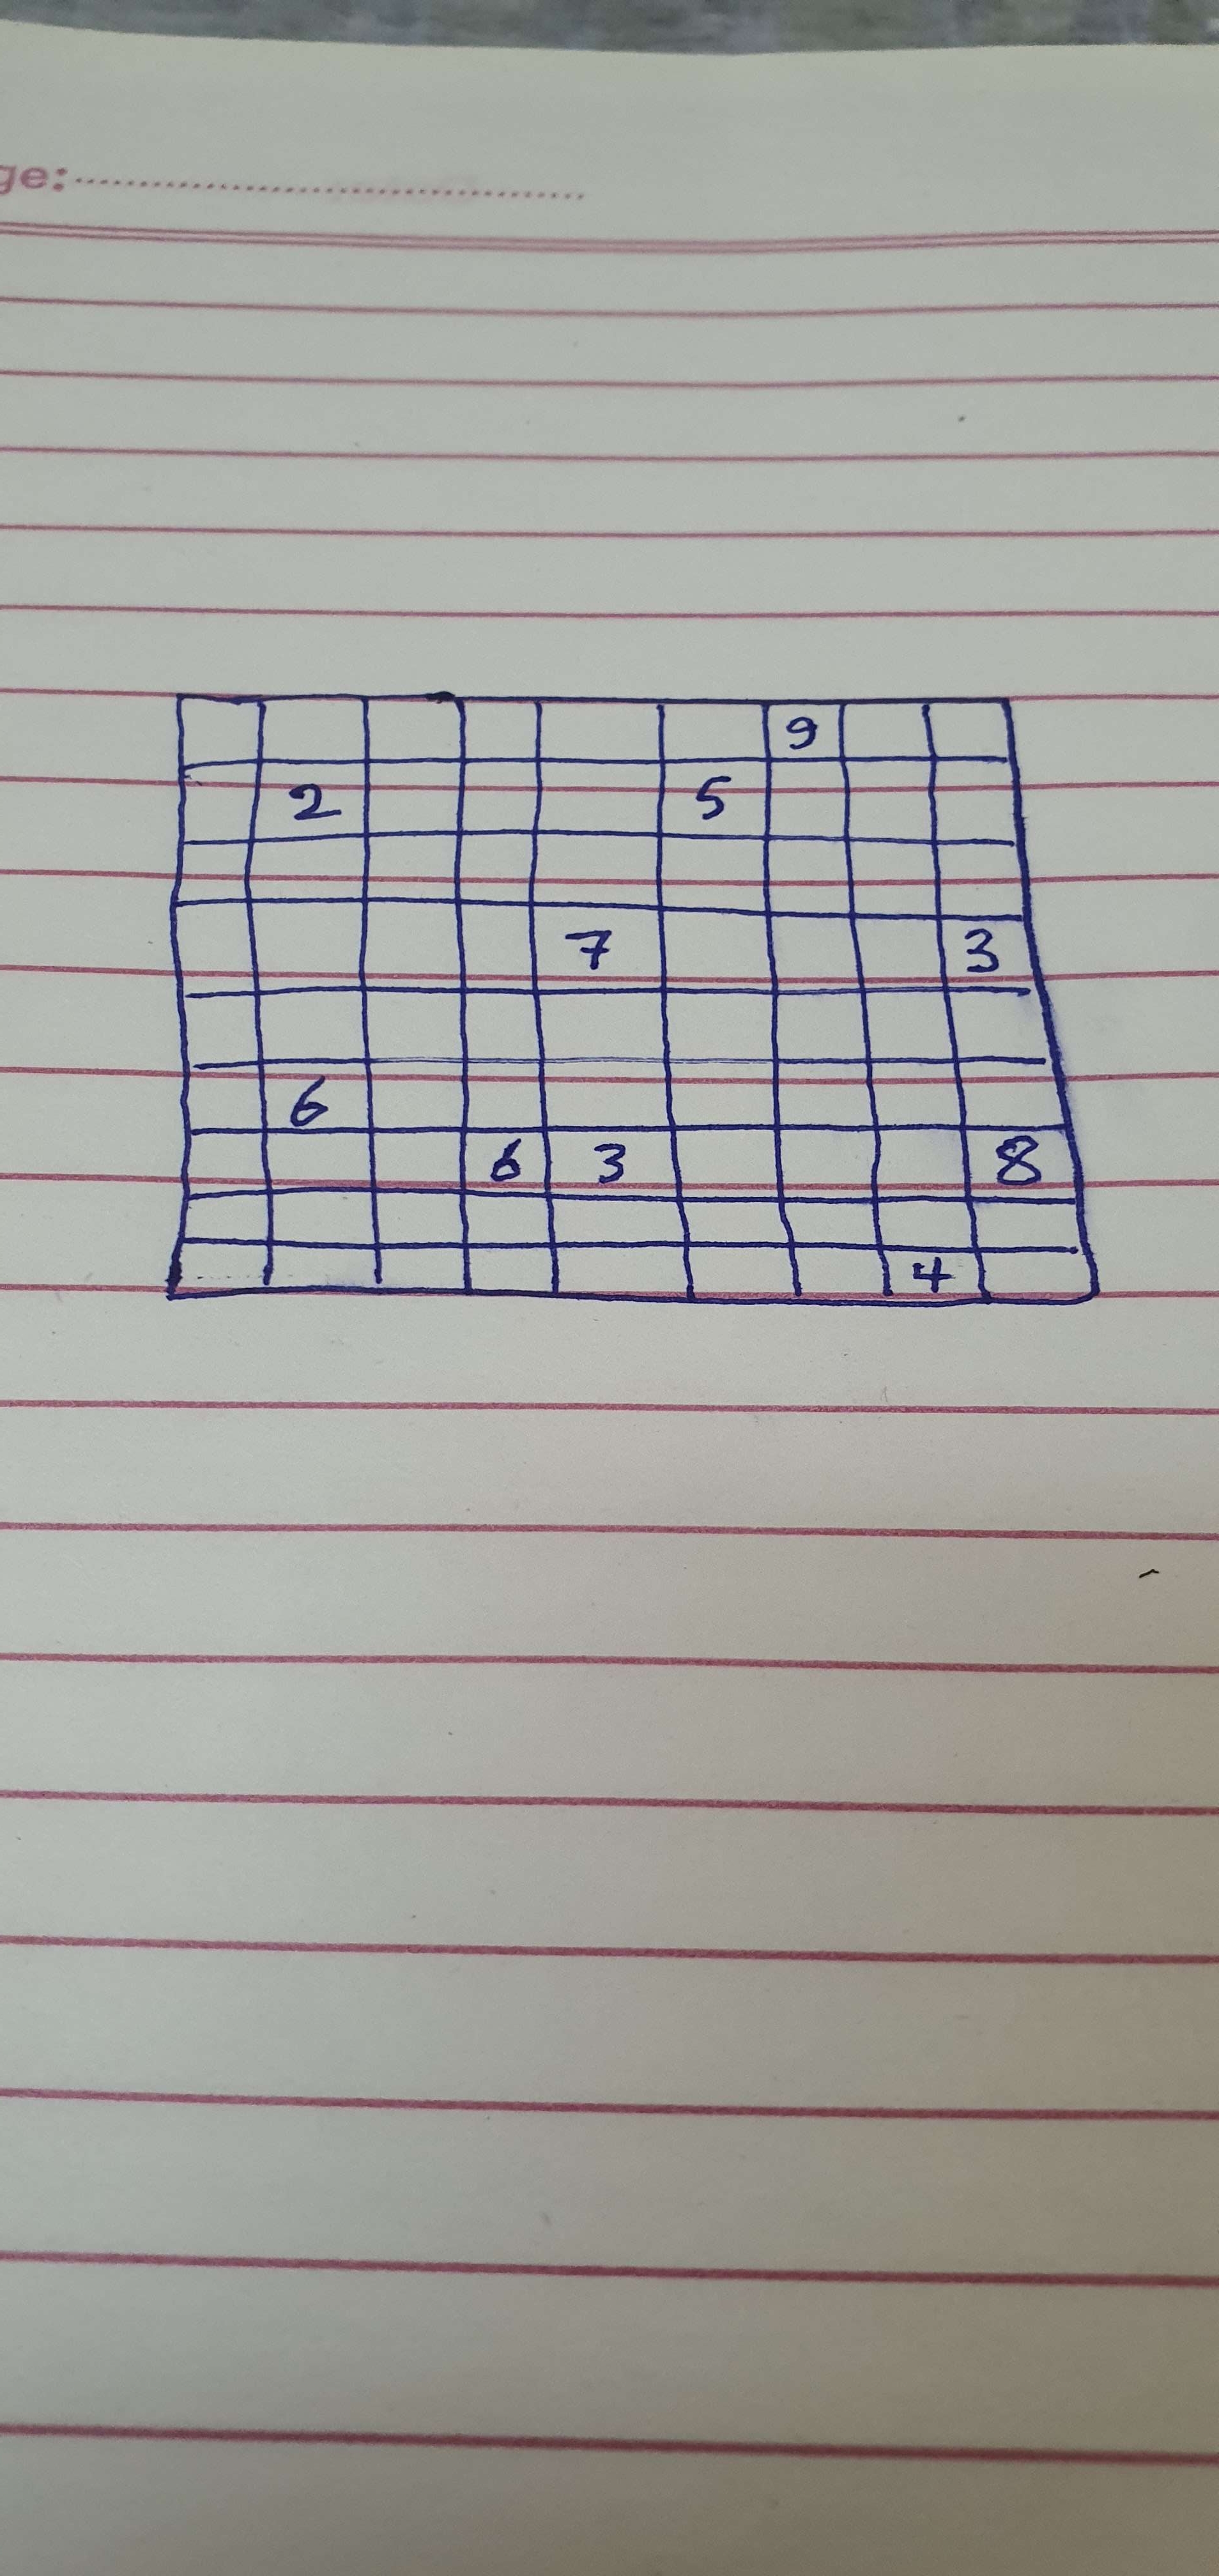 ge:
9
2 5
7 3
6
6 3 8
4